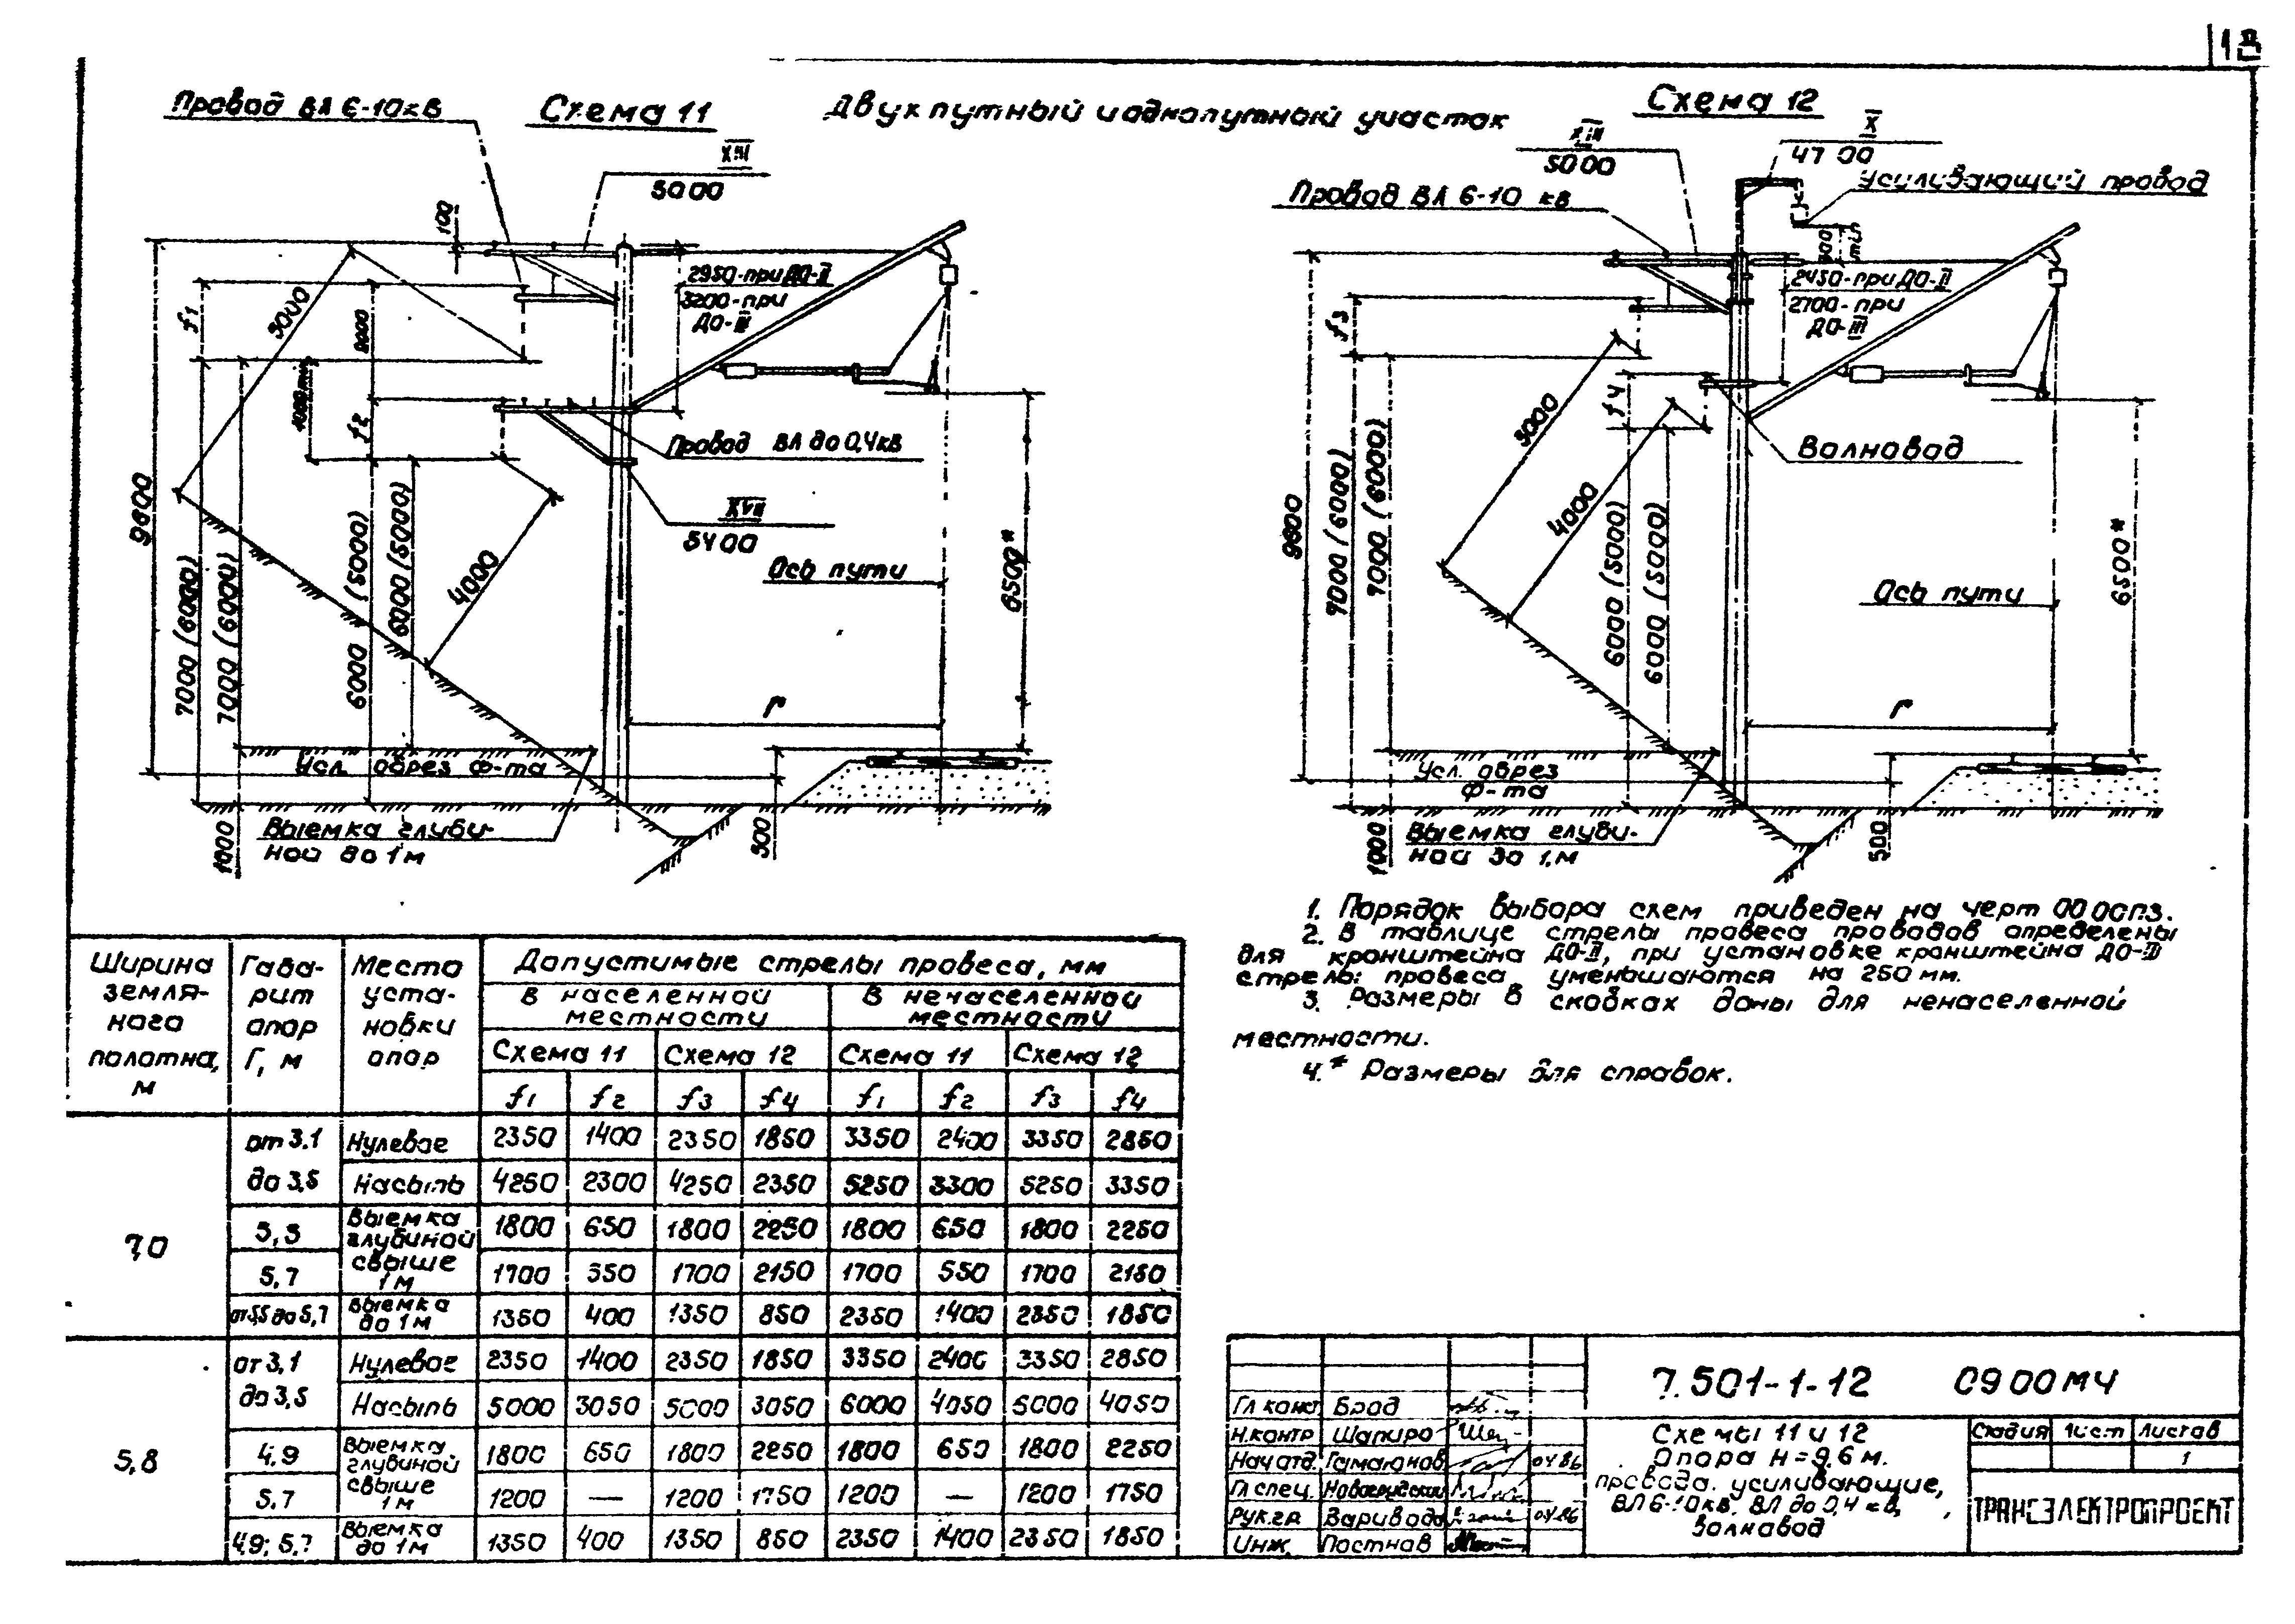 Провод ВЛ 6-10кВ
Схема 11
Двухпутный и однопутный участок
Схема 12
XIII
5000
100
2950-при ДО-II
3200-при
ДО-III
f1
5000
f2
9600
Провод ВЛ до 0,4кВ
5400
4000
Ось пути
6500*
7000 (6000)
7000 (6000)
6000 (5000)
6000 (5000)
Г
Усл. обрез ф-та
Выемка глуби-
ной до 1м
1000
500
XIII
5000
X
4700
Усиливающий провод
Провод ВЛ 6-10 кВ
2450-при ДО-II
2700-при
ДО-III
f3
f4
5000
4000
Волновод
9600
7000 (6000)
7000 (6000)
6000 (5000)
6000 (5000)
Ось пути
6500*
Г
Усл. обрез
ф-та
Выемка глуби-
ной до 1м
1000
500
1. Порядок выбора схем приведен на черт 0000ПЗ.
2. В таблице стрелы провеса проводов определены
для кронштейна ДО-II, при установке кронштейна ДО-III
стрелы провеса уменьшаются на 250 мм.
3. Размеры в скобках даны для ненаселенной
местности.
4.* Размеры для справок.
Ширина земляного полотна, м
Габарит опор Г, м
Место установки опор
Допустимые стрелы провеса, мм
В населенной местности В ненаселенной местности
Схема 11 Схема 12 Схема 11 Схема 12
f1 f2 f3 f4 f1 f2 f3 f4
7,0
от 3.1 до 3,5
Нулевое 2350 1400 2350 1850 3350 2400 3350 2850
Насыпь 4250 2300 4250 2350 5250 3300 5250 3350
Выемка глубиной свыше 1м
5,5 1800 650 1800 2250 1800 650 1800 2250
5,7 1700 550 1700 2150 1700 550 1700 2150
от 5,5 до 5,7 Выемка до 1м 1350 400 1350 850 2350 1400 2350 1850
5,8
от 3,1 до 3,5
Нулевое 2350 1400 2350 1850 3350 2400 3350 2850
Насыпь 5000 3050 5000 3050 6000 4050 6000 4050
Выемка глубиной свыше 1м
4,9 1800 650 1800 2250 1800 650 1800 2250
5,7 1200 — 1200 1750 1200 — 1200 1750
4,9; 5,7 Выемка до 1м 1350 400 1350 850 2350 1400 2350 1850
7.501-1-12 0900МЧ
Гл конст Брод
Н.контр Шапиро
Нач отд. 04.86
Гл спец.
Рук.гр Варивода 04.86
Инж. Постнов
Схемы 11 и 12
Опора Н=9,6 м.
провода усиливающие,
ВЛ 6-10кВ, ВЛ до 0,4 кВ,
волновод
Стадия Лист Листов
1
ТРАНСЭЛЕКТРОПРОЕКТ